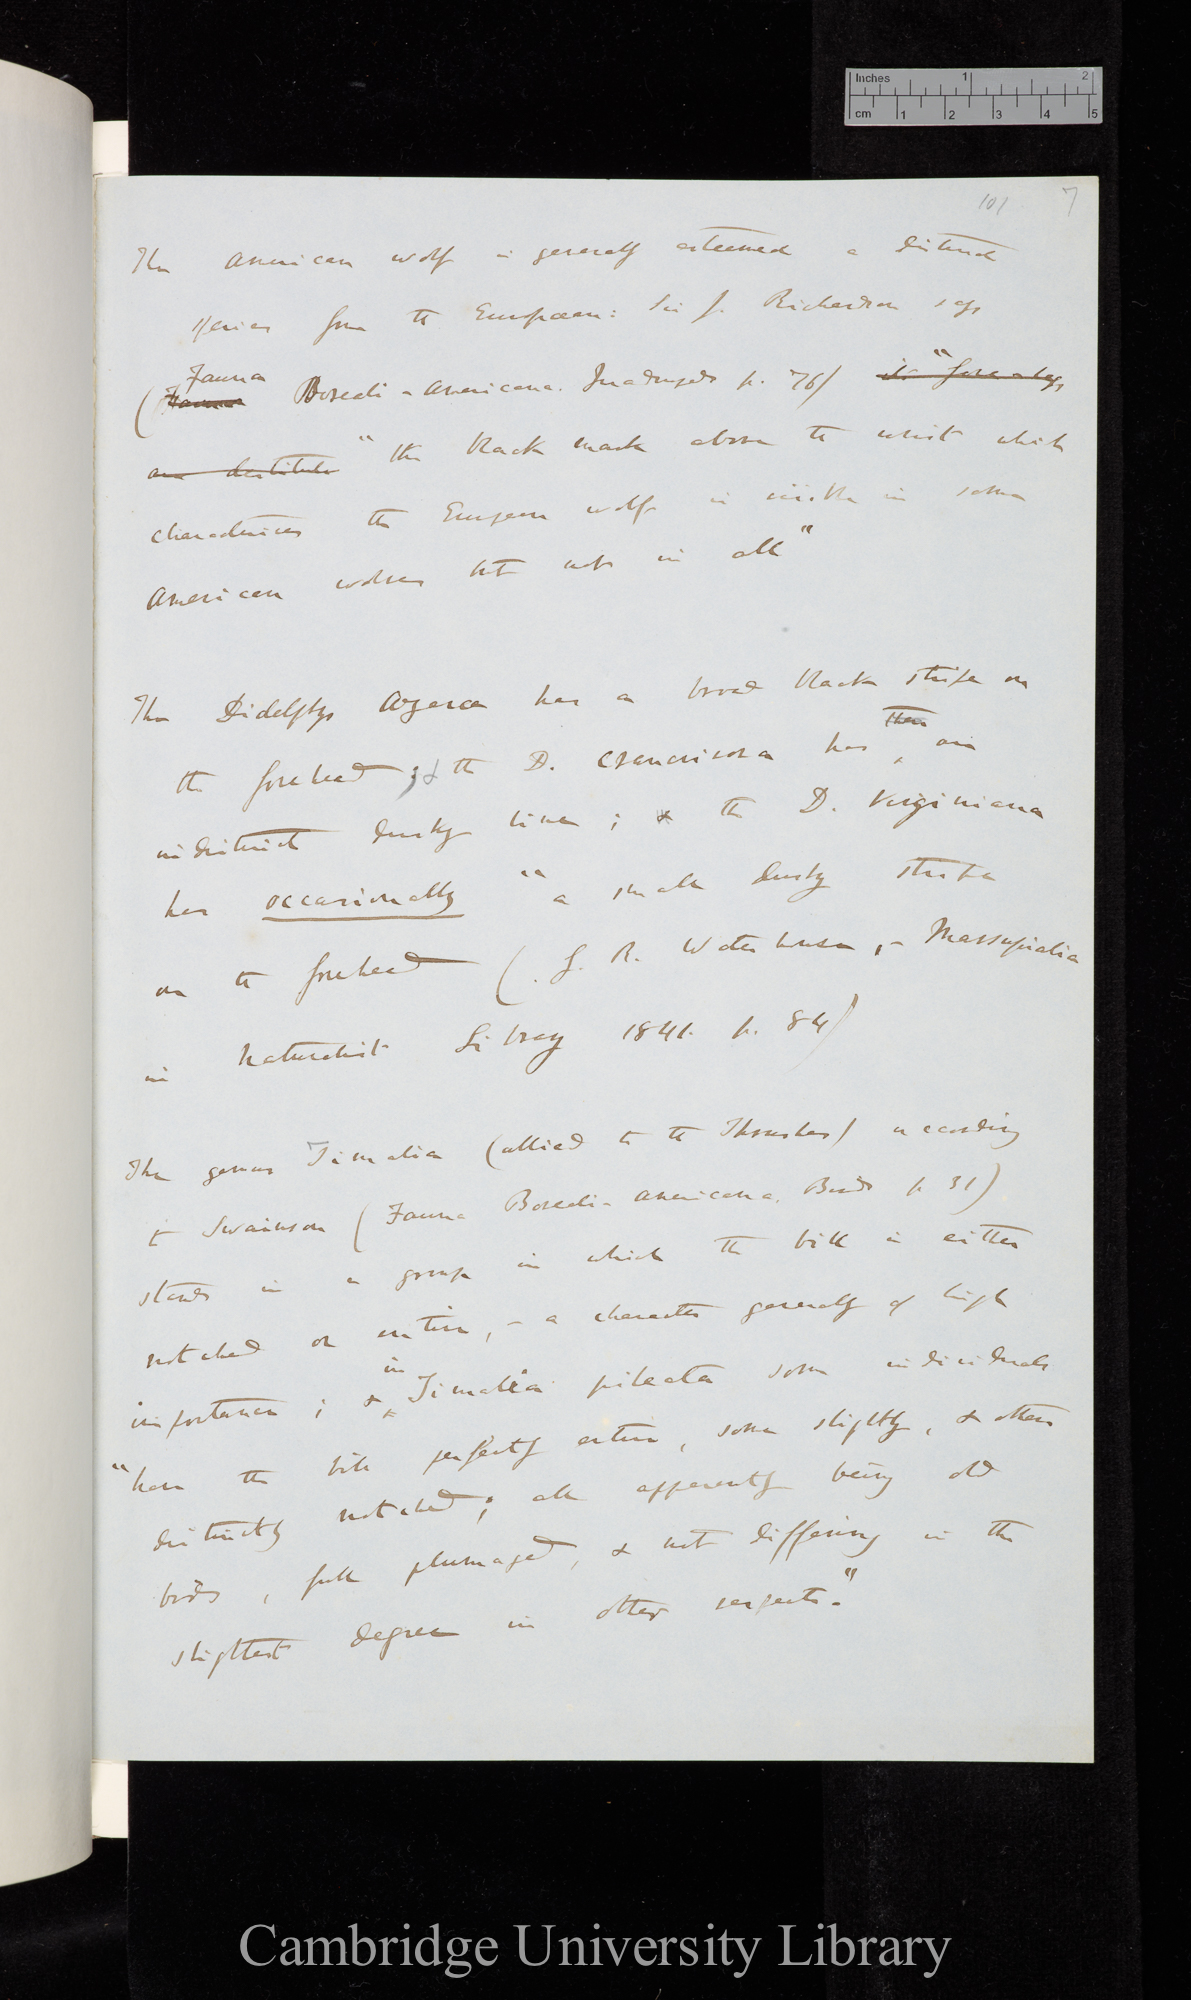 Inches 1 2
cm 1 2 3 4 5
101 7
The American wolf is generally esteemed a distinct
species from the European: Sir J. Richardson says
Fauna
( Boreali-Americana. Quadrupeds p. 76) its "fore-legs
are destitute "the black mark above the wrist which
characterises the European wolf is visible in some
American wolves but not in all"
The Didelphys Azarae has a broad black stripe on
the forehead; & the D. crancrivora has then an
indistinct dusky line; & the D. Virginiana
has occasionally "a small dusky stripe
on the forehead (G. R. Waterhouse, - Marsupialia
in Naturalist Library 1841. p. 84)
The genus Timalia (allied to the Thrushes) according
to Swainson (Fauna Boreali-Americana. Birds p 31)
stands in a group in which the bill is either
notched or entire, - a character generally of high
importance; & in Timalia pileata some individuals
"have the bill perfectly entire, some slightly, & others
distinctly notched; all apparently being old
birds, full plumaged, & not differing in the
slightest degree in other respects."
Cambridge University Library